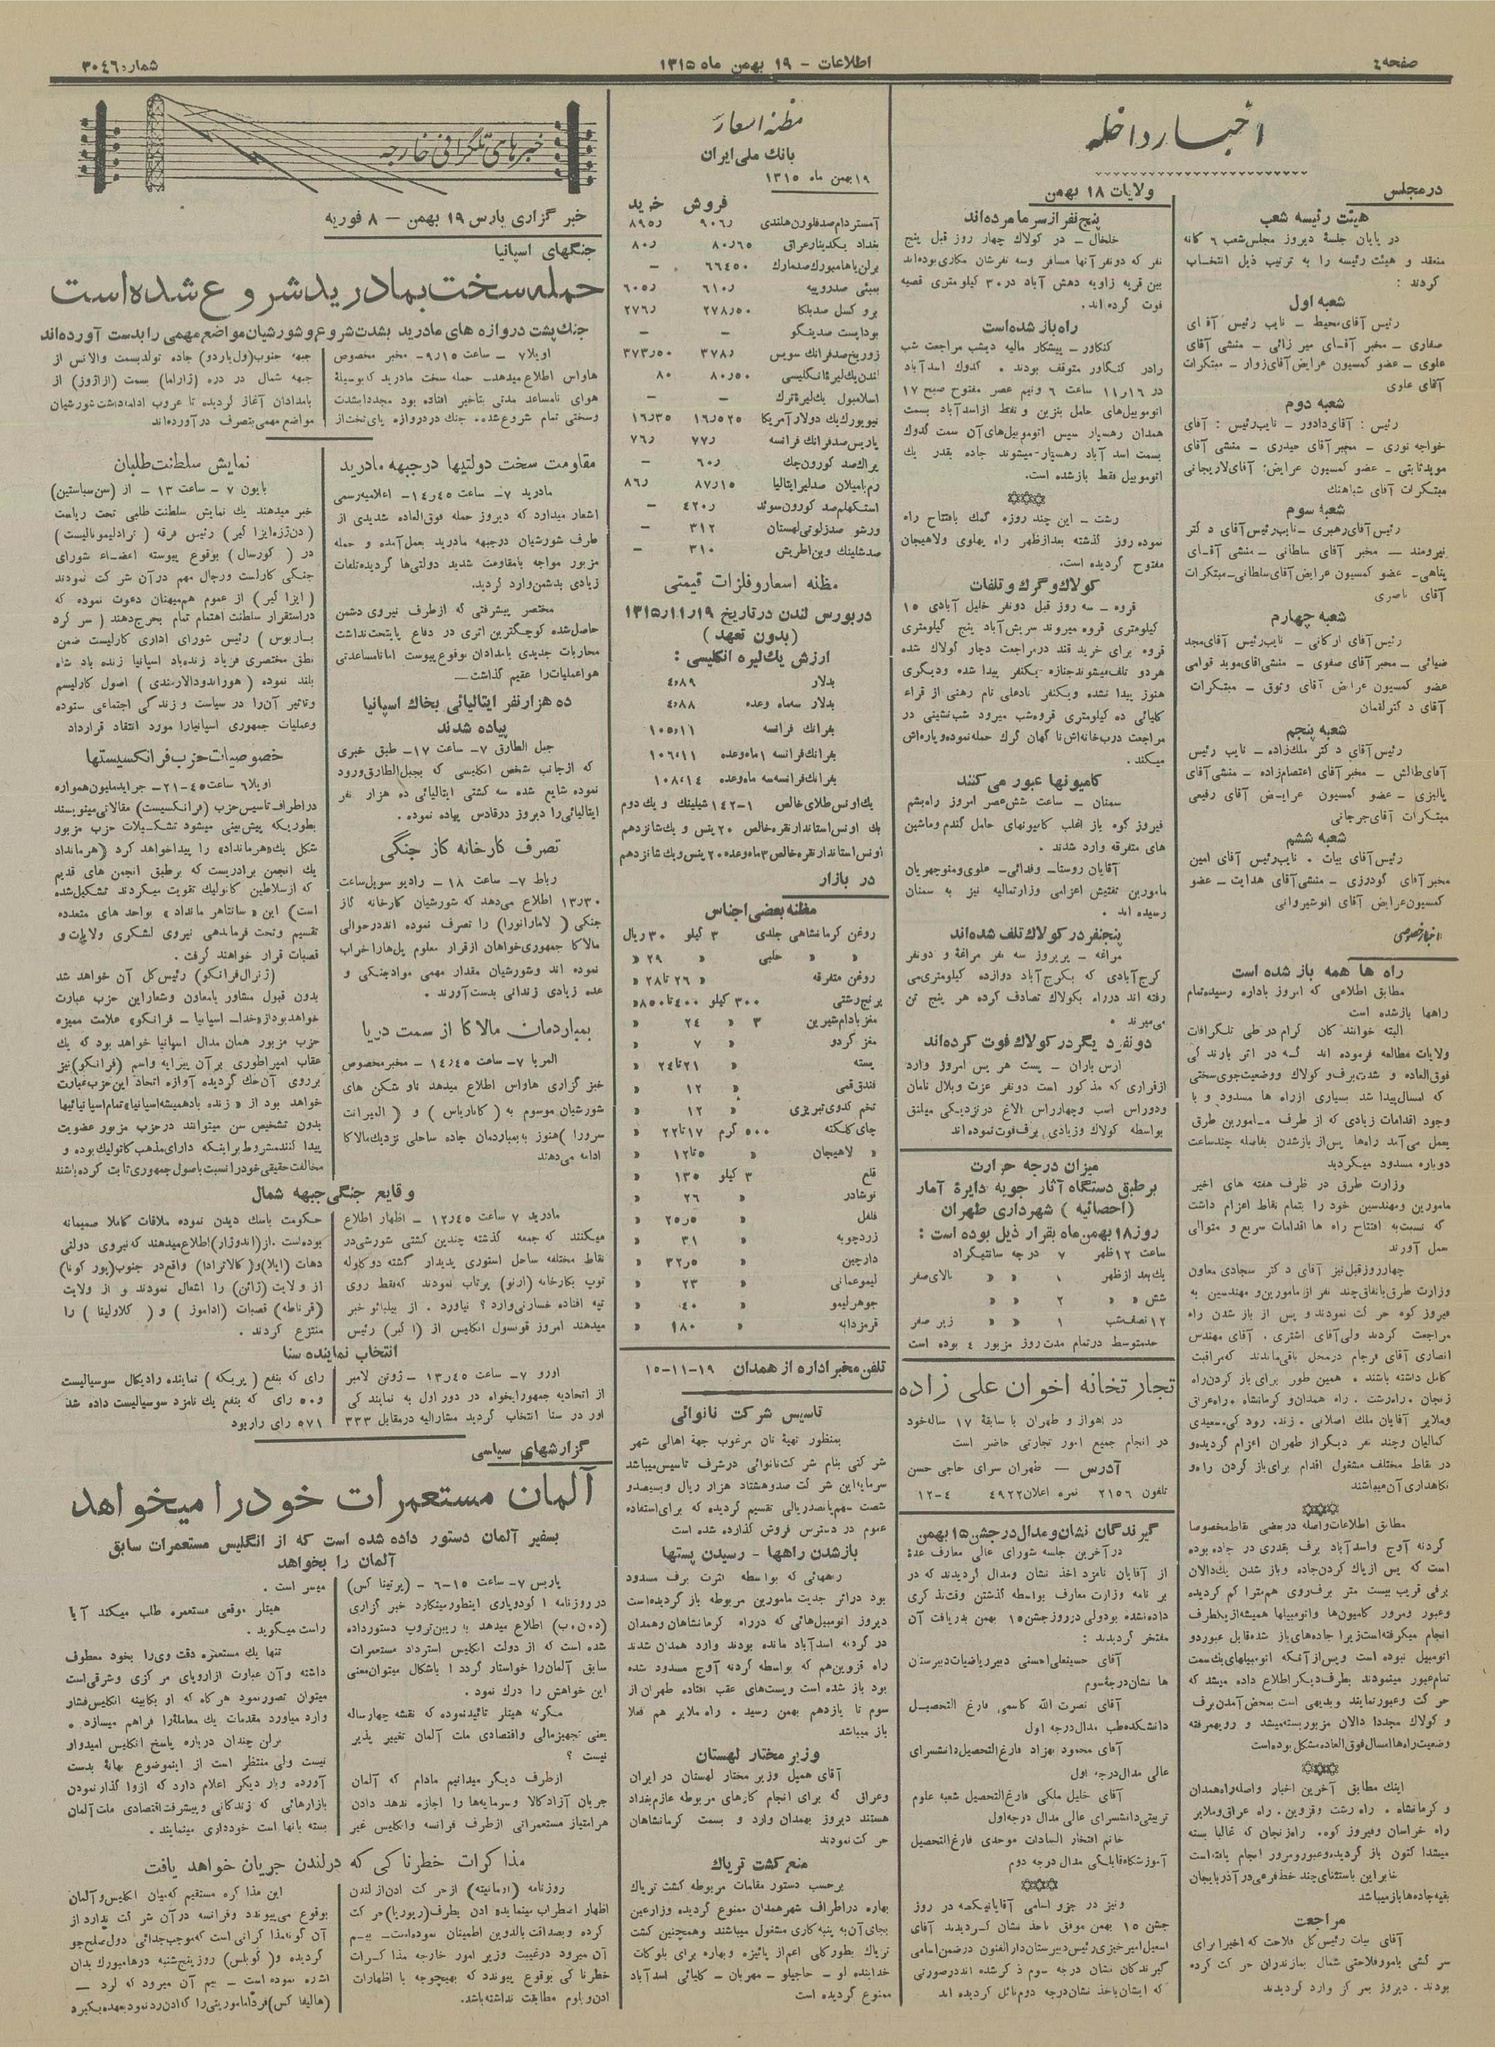 صفحه ٤
اطلاعات - ١٩ بهمن ماه ١٣١٥
شماره ٣٠٤٦
اخبار داخله
در مجلس
هیئت رئیسه شعب
در پایان جلسهٔ دیروز مجلس شعب ٦ گانه
منعقد و هیئت رئیسه را به ترتیب ذیل انتخاب
کردند :
شعبه اول
رئیس آقای محیط ـ نایب رئیس آقای
صفاری ـ مخبر آقای میرزائی ـ منشی آقای
علوی ـ عضو کمسیون عرایض آقای زوار ـ مبتکرات
آقای علوی
شعبه دوم
رئیس : آقای دادور ـ نایب رئیس : آقای
خواجه نوری ـ مخبر آقای حیدری ـ منشی آقای
موید ثابتی ـ عضو کمسیون عرایض؛ آقای لاریجانی
مبتکرات آقای شباهنك
شعبه سوم
رئیس آقای رهبری ـ نایب رئیس آقای دکتر
نیرومند ـ مخبر آقای سلطانی ـ منشی آقای
پناهی ـ عضو کمسیون عرایض آقای سلطانی ـ مبتکرات
آقای ناصری
شعبه چهارم
رئیس آقای ارکانی ـ نایب رئیس آقای مجد
ضیائی ـ مخبر آقای صفوی ـ منشی آقای موید قوامی
عضو کمسیون عرایض آقای وثوق ـ مبتکرات
آقای دکتر لقمان
شعبه پنجم
رئیس آقای دکتر ملك زاده ـ نایب رئیس
آقای طالش ـ مخبر آقای اعتصام زاده ـ منشی آقای
پالیزی ـ عضو کمسیون عرایض آقای رفیعی
مبتکرات آقای جرجانی
شعبه ششم
رئیس آقای بیات . نایب رئیس آقای امین
مخبر آقای گودرزی ـ منشی آقای هدایت ـ عضو
کمسیون عرایض آقای انوشیروانی
اخبار خصوصی
راه ها همه باز شده است
مطابق اطلاعی که امروز باداره رسیده تمام
راهها باز شده است
البته خوانندگان گرام در طی تلگرافات
ولایات مطالعه فرموده اند که در اثر بارندگی
فوق العاده و شدت برف و کولاك و وضعیت جوی سختی
که امسال پیدا شد بسیاری از راه ها مسدود و با
وجود اقدامات زیادی که از طرف مأمورین طرق
بعمل می آمد راه ها پس از باز شدن بفاصله چند ساعت
دوباره مسدود میگردید
وزارت طرق در ظرف هفته های اخیر
مامورین و مهندسین خود را بتمام نقاط اعزام داشت
که نسبت به افتتاح راه ها اقدامات سریع و متوالی
بعمل آورند
چهار روز قبل نیز آقای دکتر سجادی معاون
وزارت طرق باتفاق چند نفر از مامورین و مهندسین به
فیروز کوه حرکت نمودند و پس از باز شدن راه
مراجعت کردند ولی آقای اشتری . آقای مهندس
انصاری آقای فرجام در محل باقی ماندند که مراقبت
کامل داشته باشند . همین طور برای باز کردن راه
زنجان . راه رشت . راه همدان و کرمانشاه . راه عراق
و ملایر آقایان ملك اصلانی . زنده رودکی . سعیدی
کمالیان و چند نفر دیگر از طهران اعزام گردیده و
در نقاط مختلف مشغول اقدام برای باز کردن راه و
نگاهداری آن میباشند
مطابق اطلاعات واصله در بعضی نقاط مخصوصا
گردنه آوج و اسد آباد برف بقدری در جاده بوده
است که پس از پاك کردن جاده و باز شدن یك دالان
برفی قریب بیست متر برف روی هم متراکم گردیده
و عبور و مرور کامیون ها و اتومبیلها همیشه از یکطرف
انجام میگرفته است زیرا جاده های باز شده قابل عبور دو
اتومبیل نبوده است و پس از آنکه اتومبیلهای یك سمت
تمام عبور مینمودند بطرف دیگر اطلاع داده میشد که
حرکت و عبور نمایند و بدیهی است بمحض آمدن برف
و کولاك مجددا دالان مزبور بسته میشد و رویهمرفته
وضعیت راه ها امسال فوق العاده مشکل بوده است
اینك مطابق آخرین اخبار واصله راه همدان
و کرمانشاه . راه رشت و قزوین . راه عراق و ملایر
راه خراسان و فیروز کوه . راه زنجان که غالبا بسته
میشد اکنون باز گردیده و عبور و مرور انجام یافته است
بنا براین باستثنای چند خط فرعی در آذربایجان
بقیه جاده ها باز میباشد
مراجعت
آقای بیات رئیس کل فلاحت که اخیرا برای
سرکشی بامور فلاحتی شمال بمازندران حرکت کرده
بودند . دیروز بمرکز وارد گردیدند
ولایات ١٨ بهمن
پنج نفر از سرما مرده اند
خلخال ـ در کولاك چهار روز قبل پنج
نفر که دو نفر آنها مسافر و سه نفرشان مکاری بوده اند
بین قریه زاویه دهش آباد در ٣٠ کیلومتری قصبه
فوت کرده اند.
راه باز شده است
کنگاور ـ پیشکار مالیه دیشب مراجعت شب
را در کنگاور متوقف بودند . گدوك اسد آباد
در ١٦ر١١ ساعت ٦ و نیم عصر مفتوح صبح ١٧
اتومبیل های حامل بنزین و نفط از اسد آباد بسمت
همدان رهسپار سپس اتومبیل های آن سمت گدوك
بسمت اسد آباد رهسپار میشوند جاده بقدر یك
اتومبیل فقط باز شده است.
رشت ـ این چند روزه کمك بافتتاح راه
نموده روز گذشته بعد از ظهر راه پهلوی و لاهیجان
مفتوح گردیده است.
کولاك و گرك و تلفات
قروه ـ سه روز قبل دو نفر خلیل آبادی ١٥
کیلومتری قروه میروند سریش آباد پنج کیلومتری
قروه برای خرید قند در مراجعت دچار کولاك شده
هر دو تلف میشوند جنازه یکنفر پیدا شده و دیگری
هنوز پیدا نشده و یکنفر نادعلی نام رهنی از قراء
کلیائی ده کیلومتری قروه شب میرود شب نشینی در
مراجعت درب خانه اش ناگهان گرك حمله نموده و پاره اش
میکند .
کامیونها عبور می کنند
سمنان ـ ساعت شش عصر امروز راه بشم
فیروز کوه باز اغلب کامیونهای حامل گندم و ماشین
های متفرقه وارد شدند .
آقایان روستا ـ وفدائی ـ علوی و منوچهریان
مامورین تفتیش اعزامی وزارت مالیه نیز به سمنان
رسیده اند .
پنجنفر در کولاك تلف شده اند
مراغه ـ پریروز سه نفر مراغهٔ و دو نفر
کرج آبادی که بکرج آباد دوازده کیلومتری می
رفته اند در راه بکولاك تصادف کرده هر پنج تن
می میرند .
دو نفر دیگر در کولاك فوت کرده اند
ارس باران ـ پست هریس امروز وارد
از قراری که مذکور است دو نفر عزت و بلال نامان
و دو راس اسب و چهار راس الاغ در نزدیکی میلنق
بواسطه کولاك و زیادی برف فوت نموده اند
میزان درجه حرارت
بر طبق دستگاه آثار جویه دایرهٔ آمار
(احصائیه) شهرداری طهران
روز ١٨ بهمن ماه بقرار ذیل بوده است :
ساعت ١٢ ظهر ٧ درجه سانتیگراد
یك بعد از ظهر ١ « « بالای صفر
شش « « ٢ « «
١٢ نصف شب ١ « « زیر صفر
حد متوسط در تمام مدت روز مزبور ٤ بوده است
تجارتخانه اخوان علی زاده
در اهواز و طهران با سابقهٔ ١٧ ساله خود
در انجام جمیع امور تجارتی حاضر است
آدرس ـ طهران سرای حاجی حسن
تلفون ٢١٥٦ نمره اعلان ٤٩٢٢ ٤-١٢
گیرندگان نشان و مدال در جشن ١٥ بهمن
در آخرین جلسه شورای عالی معارف عدهٔ
از آقایان نامزد اخذ نشان ومدال گردیدند که در
برنامه وزارت معارف بواسطه گذشتن وقت ذکری
داده نشده بود ولی در روز جشن ١٥ بهمن بدریافت آن
مفتخر گردیدند :
آقای حسینعلی احسنی دبیر ریاضیات دبیرستان
ها نشان درجهٔ سوم
آقای نصرت الله کاسمی فارغ التحصیل
دانشکده طب مدال درجه اول
آقای محمود بهزاد فارغ التحصیل دانشسرای
عالی مدال درجه اول
آقای خلیل ملکی فارغ التحصیل شعبه علوم
تربیتی دانشسرای عالی مدال درجه اول
خانم افتخار السادات موحدی فارغ التحصیل
آموزشگاه قابلگی مدال درجه دوم
ونیز در جزو اسامی آقایانیکه در روز
جشن ١٥ بهمن موفق باخذ نشان گردیدند آقای
اسمعیل امیرخیزی رئیس دبیرستان دارالفنون در ضمن اسامی
گیرندگان نشان درجه سوم ذکر شده اند در صورتی
که ایشان باخذ نشان درجه دوم نائل گردیده اند
مظنه اسعار
بانك ملی ایران
١٩ بهمن ماه ١٣١٥
فروش خرید
آمستردام صد فلورن هلندی ٩٠٦ر ٨٩٥ر
بغداد یکدینار عراق ٨٠ر٦٥ ٨٠ر
برلن یا هامبورك صد مارك ٦٦٤٥٠ ـ
بمبئی صد روپیه ٦١٠ر ٦٠٥ر
بروکسل صد بلگا ٢٧٨ر٥٠ ٢٧٦ر
بوداپست صد پنگو ـ ـ
زوریخ صد فرانك سویس ٣٧٨ر ٣٧٣ر٥٠
لندن یك لیره انگلیسی ٨٠ر٥٠ ٨٠
اسلامبول یك لیره ترك ـ ـ
نیویورك یك دولار آمریکا ١٦ر٥٢٥ ١٦ر٣٥
پاریس صد فرانك فرانسه ٧٧ر ٧٦ر
پراك صد کورون چك ٦٠ر ـ
رم یا میلان صد لیر ایتالیا ٨٧ر١٥ ٨٦ر
استکهلم صد کورون سوئد ٤٢٠ر ـ
ورشو صد زلوتی لهستان ٣١٢ ـ
صد شلینك وین اطریش ٣١٠ ـ
مظنه اسعار و فلزات قیمتی
در بورس لندن در تاریخ ١٩ر١١ر١٣١٥
(بدون تعهد)
ارزش یك لیره انگلیسی :
بدلار ٤٫٨٩
بدلار سه ماه وعده ٤٫٨٨
بفرانك فرانسه ١٠٥٫١١
بفرانك فرانسه ١ ماه وعده ١٠٦٫١١
بفرانك فرانسه سه ماه وعده ١٠٨٫١٤
یك اونس طلای خالص ١-١٤٢ شیلینك و یك دوم
یك اونس استاندار نقره خالص ٢٠ پنس و یك شانزدهم
اونس استاندار نقره خالص ٣ ماه وعده ٢٠ پنس و یك شانزدهم
در بازار
مظنه بعضی اجناس
روغن کرمانشاهی جلدی ٣ کیلو ٣٠ ریال
« « حلبی « ٢٩ «
روغن متفرقه « ٢٦ تا ٢٨ «
برنج رشتی ٣٠٠ کیلو ٤٠٠ تا ٨٥٠ «
مغز بادام شیرین ٣ « ٢٤ «
مغز گردو « ٧ «
پسته « ٢١ تا ٢٤ «
فندق قمی « ١٢ «
تخم کدوی تبریزی « ١٢ «
چای کلکته ٥٠٠ گرم ١٧ تا ٢٢ «
« لاهیجان « ٥ تا ١٢ «
قلع ٣ کیلو ١٣٥ «
نوشادر « ٢٦ «
فلفل « ٢٥ر٥ «
زردچوبه « ٣١ «
دارچین « ٣٢ر٥ «
لیمو عمانی « ٢٣ «
جوهر لیمو « ٤٠ «
قرمز دانه « ١٨٠ «
تلفن مخبر اداره از همدان ١٩-١١-١٥
تاسیس شرکت نانوائی
بمنظور تهیهٔ نان مرغوب جهة اهالی شهر
شرکتی بنام شرکت نانوائی در شرف تاسیس میباشد
سرمایه این شرکت صد و هشتاد هزار ریال و بسیصد و
شصت سهم پانصد ریالی تقسیم گردیده که برای استفاده
عموم در دسترس فروش گذارده شده است
باز شدن راهها - رسیدن پستها
راههائی که بواسطه کثرت برف مسدود
بود در اثر جدیت مامورین مربوطه باز گردیده است
دیروز اتومبیل هائی که در راه کرمانشاهان و همدان
در گردنه اسد آباد مانده بودند وارد همدان شدند
راه قزوین هم که بواسطه گردنه آوج مسدود شده
بود باز شده است و پست های عقب افتاده طهران از
سوم تا یازدهم بهمن رسید . راه ملایر هم فعلا
باز میباشد
وزیر مختار لهستان
آقای همپل وزیر مختار لهستان در ایران
وعراق که برای انجام کارهای مربوطه عازم بغداد
هستند دیروز بهمدان وارد و بسمت کرمانشاهان
حرکت نمودند
منع کشت تریاك
برحسب دستور مقامات مربوطه کشت تریاك
بهاره در اطراف شهر همدان ممنوع گردیده و زارعین
بجای آن به پنبه کاری مشغول میباشند و همچنین کشت
تریاك بطور کلی اعم از پائیزه و بهاره برای بلوکات
خدابنده لو ـ حاجیلو ـ مهربان ـ کلیائی اسد آباد
ممنوع گردیده است
خبرهای تلگرافی خارجه
خبر گزاری پارس ١٩ بهمن ـ ٨ فوریه
جنگهای اسپانیا
حمله سخت بمادرید شروع شده است
جنك پشت دروازه های مادرید بشدت شروع و شورشیان مواضع مهمی را بدست آورده اند
اویلا ٧ ـ ساعت ٩ر١٥ ـ مخبر مخصوص
هاواس اطلاع میدهد. حمله سخت مادرید که بوسیلهٔ
هوای نامساعد مدتی بتاخیر افتاده بود مجددا بشدت
وسختی تمام شروع شد . جنك در دروازه پای تخت از
جبهه جنوب (ول یاردو) جاده تولد بسمت والانس از
جبهه شمال در دره (ژاراما) بسمت (ارژوز) از
بامدادان آغاز گردیده تا غروب ادامه داشت شورشیان
مواضع مهمی بتصرف در آورده اند
مقاومت سخت دولتیها در جبهه مادرید
مادرید ٧ ـ ساعت ١٤ر٤٥ ـ اعلامیه رسمی
اشعار میدارد که دیروز حمله فوق العاده شدیدی از
طرف شورشیان در جبهه مادرید بعمل آمده و حمله
مزبور مواجه با مقاومت شدید دولتی ها گردیده تلفات
زیادی بدشمن وارد گردید.
مختصر پیشرفتی که از طرف نیروی دشمن
حاصل شده کوچکترین اثری در دفاع پایتخت نداشت
محاربات جدیدی بامدادان بوقوع پیوست اما نامساعدتی
هوا عملیات را عقیم گذاشت ـ
ده هزار نفر ایتالیائی بخاك اسپانیا
پیاده شدند
جبل الطارق ٧ ـ ساعت ١٧ ـ طبق خبری
که از جانب شخص انگلیسی که بجبل الطارق ورود
نموده شایع شده سه کشتی ایتالیائی ده هزار نفر
ایتالیائی را دیروز در قادس پیاده نموده .
تصرف کارخانه گاز جنگی
رباط ٧ ـ ساعت ١٨ ـ رادیو سویل ساعت
١٣ر٣٠ اطلاع می دهد که شورشیان کارخانه گاز
جنگی (لامارانورا) را تصرف نموده اند در حوالی
مالاگا جمهوری خواهان از قرار معلوم پل ها را خراب
نموده اند و شورشیان مقدار مهمی مواد جنگی و
عده زیادی زندانی بدست آورند .
بمباردمان مالاگا از سمت دریا
المریا ٧ ـ ساعت ١٤ر٤٥ ـ مخبر مخصوص
خبر گزاری هاواس اطلاع میدهد ناو شکن های
شورشیان موسوم به (کاناریاس) و (المیرانت
سرورا) هنوز به بمباردمان جاده ساحلی نزدیك مالاگا
ادامه می دهند
نمایش سلطنت طلبان
بایون ٧ ـ ساعت ١٣ ـ از (سن سباستین)
خبر میدهند یك نمایش سلطنت طلبی تحت ریاست
(دن ژزه ایزاگیر) رئیس فرقه (ترادلیسونالیست)
در (کورسال) بوقوع پیوسته اعضاء شورای
جنگی کارلیست و رجال مهم در آن شرکت نمودند
(ایزاگیر) از عموم هم میهنان دعوت نموده که
در استقرار سلطنت اهتمام تمام بخرج دهند (سرگرد
باربوس) رئیس شورای اداری کارلیست ضمن
نطق مختصری فریاد زنده باد اسپانیا زنده باد شاه
بلند نموده (هوراندودالارسندی) اصول کارلیسم
و تاثیر آن را در سیاست و زندگی اجتماعی ستوده
وعملیات جمهوری اسپانیا را مورد انتقاد قرارداد
خصوصیات حزب فرانکسیستها
اویلا ٦ ساعت ٤٥-٢١ ـ جراید ملیون همواره
در اطراف تاسیس حزب (فرانکسیست) مقالاتی مینویسند
بطوریکه پیش بینی میشود تشکیلات حزب مزبور
شکل یك «هرمانداد» را پیدا خواهد کرد (هرمانداد
یك انجمن برادریست که بر طبق انجمن های قدیم
که از سلاطین کاتولیك تقویت میکردند تشکیل شده
است) این «سانتاهرمانداد» بواحد های متعدده
تقسیم و تحت فرماندهی نیروی لشکری ولایات و
قصبات قرار خواهند گرفت .
(ژنرال فرانکو) رئیس کل آن خواهد شد
بدون قبول مشاور یا معاون و شعار این حزب عبارت
خواهد بود از «خدا ـ اسپانیا ـ فرانکو» علامت ممیزه
حزب مزبور همان مدال اسپانیا خواهد بود که یك
عقاب امپراطوری بر آن پیرایه و اسم (فرانکو) نیز
بر روی آن حك گردیده آوازه اتحاد این حزب عبارت
خواهد بود از « زنده باد همیشه اسپانیا» تمام اسپانیائیها
بدون تشخیص سن میتوانند در حزب مزبور عضویت
پیدا کنند مشروط بر اینکه دارای مذهب کاتولیك بوده و
مخالفت حقیقی خود را نسبت باصول جمهوری ثابت کرده باشند
وقایع جنگی جبهه شمال
مادرید ٧ ساعت ١٢ر٤٥ ـ اظهار اطلاع
میکنند که جمعه گذشته چندین کشتی شورشی در
نقاط مختلفه ساحل استوری پدیدار گشته دو گلوله
توپ بکارخانه (ارنو) پرتاب نمودند که فقط روی
تپه افتاده خسارتی وارد؟ نیاورد . از بیلبائو خبر
میدهند امروز قونسول انگلیس از (اگیر) رئیس
حکومت باسك دیدن نموده ملاقات کاملا صمیمانه
بوده است . از (اندوژار) اطلاع میدهند که نیروی دولتی
دهات (ایلا) و (کالاترادا) واقع در جنوب (پورکونا)
از ولایت (ژائن) را اشغال نمودند و از ولایت
(قرناطه) قصبات (اداموز) و (کلارلینا) را
منتزع کردند .
انتخاب نماینده سنا
اورو ٧ ـ ساعت ١٣ر٤٥ ـ ژوتن لامبر
از اتحادیه جمهوریخواه در دور اول به نمایندگی
اور در سنا انتخاب گردید مشارالیه در مقابل ٣٣٣
رای که بنفع (بریکه) نماینده رادیکال سوسیالیست
و ٥٠ رای که بنفع یك نامزد سوسیالیست داده شد
٥٧١ رای را ربود
گزارشهای سیاسی
آلمان مستعمرات خود را میخواهد
بسفیر آلمان دستور داده شده است که از انگلیس مستعمرات سابق
آلمان را بخواهد
پاریس ٧ ـ ساعت ١٥-٦ ـ (پرتیناکس)
در روزنامه اکودوپاری اینطور مینگارد خبر گزاری
(د.ن.ب) اطلاع میدهد به ریبن تروپ دستور داده
شده است که از دولت انگلیس استرداد مستعمرات
سابق آلمان را خواستار گردد اباشکال میتوان معنی
این خواهش را درك نمود .
مگر نه هیتلر تائید نموده که نقشه چهار ساله
یعنی تجهیز مالی و اقتصادی ملت آلمان تغییر پذیر
نیست ؟
از طرف دیگر میدانیم مادام که آلمان
جریان آزاد کالا و سرمایه ها را اجازه ندهد دادن
هر امتیاز مستعمراتی از طرف فرانسه و انگلیس غیر
میسر است .
هیتلر موقعی مستعمره طلب میکند آیا
راست میگوید .
تنها یك مستعمره دقت وی را بخود معطوف
داشته و آن عبارت از اروپای مرکزی و شرقی است
میتوان تصور نمود هرگاه که او بکابینه انگلیس فشار
وارد میاورد مقدمات یك معاملهٔ را فراهم میسازد .
برلن چندان درباره پاسخ انگلیس امیدوار
نیست ولی منتظر است از اینموضوع بهانهٔ بدست
آورده و بار دیگر اعلام دارد که از وا گذار نمودن
بازارهائی که زندگانی و پیشرفت اقتصادی ملت آلمان
بسته بآنها است خودداری مینمایند .
مذاکرات خطرناکی که در لندن جریان خواهد یافت
روزنامه (اومانیته) از حرکت ادن از لندن
اظهار اضطراب مینماید ادن بطرف (ریویرا) حرکت
کرده و بصداقت بالدوین اطمینان نموده است ـ بیم
آن میرود در غیبت وزیر امور خارجه مذاکرات
خطرناکی بوقوع پیوندد که بهیچوجه با اظهارات
ادن و بلوم مطابقت نداشته باشد.
این مذاکره مستقیم که میان انگلیس و آلمان
بوقوع می پیوندد و فرانسه در آن شرکت ندارد از
آن گونه مذاکراتی است که موجب جدائی دول صلح جو
گردیده و (گوبلس) روز پنج شنبه در هامبورك بدان
اشاره نموده است ـ بیم آن میرود که لرد ـ
(هالیفاکس) فردا ماموریتی را که ادن رد نمود بعهده بگیرد